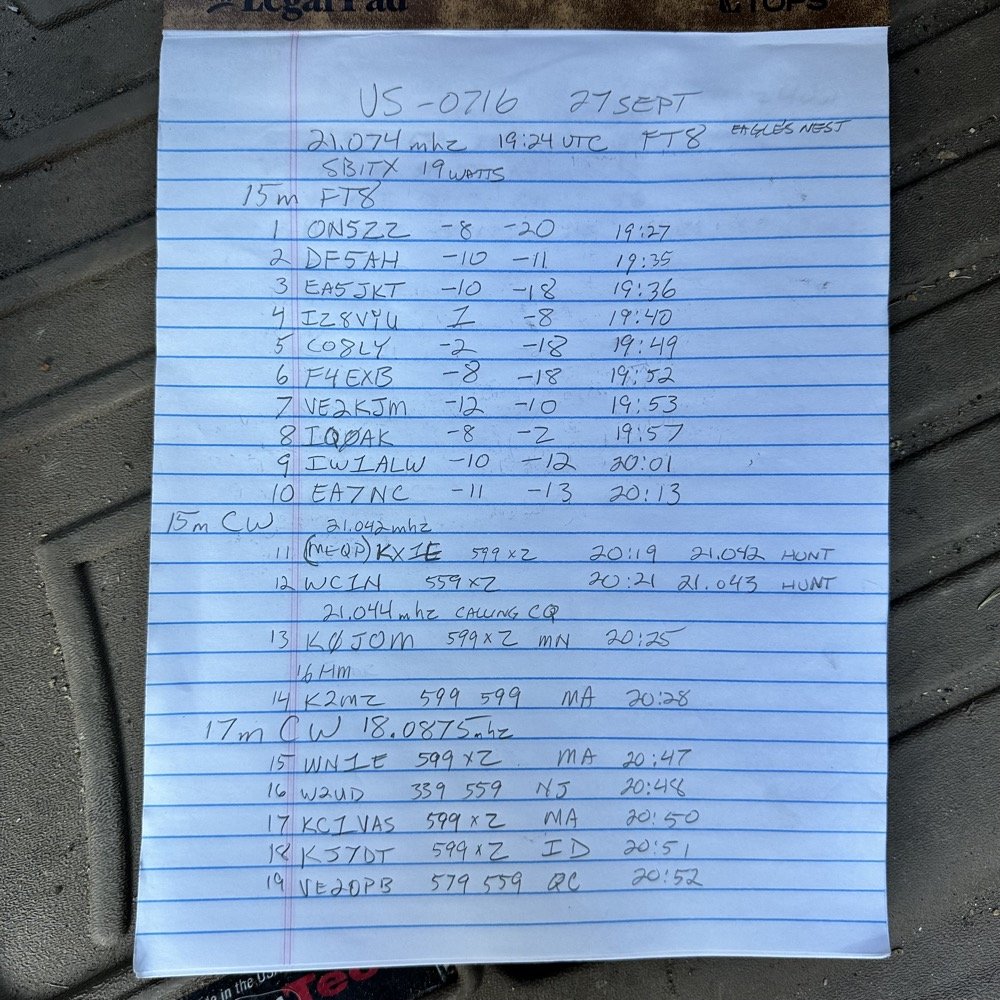 Legal Pad
TOPS
US-0716 27 SEPT
21.074 mhz 19:24 UTC FT8 EAGLES NEST
SBITX 19 WATTS
15m FT8
1 ON5ZZ -8 -20 19:27
2 DF5AH -10 -11 19:35
3 EA5JKT -10 -18 19:36
4 IZ8VYU 1 -8 19:40
5 CO8LY -2 -18 19:49
6 F4EXB -8 -18 19:52
7 VE2KJM -12 -10 19:53
8 IQØAK -8 -2 19:57
9 IW1ALW -10 -12 20:01
10 EA7NC -11 -13 20:13
15m CW 21.042mhz
11 (MEQP) KX1E 599 x 2 20:19 21.042 HUNT
12 WC1N 559 x 2 20:21 21.043 HUNT
21.044 mhz CALLING CQ
13 KØJOM 599 x 2 MN 20:25
14 K2MZ 599 599 MA 20:28
17m CW 18.0875mhz
15 WN1E 599 x 2 MA 20:47
16 W2UD 339 559 NJ 20:48
17 KC1VAS 599 x 2 MA 20:50
18 KJ7DT 599 x 2 ID 20:51
19 VE2DPB 579 559 QC 20:52
in the US
Tec